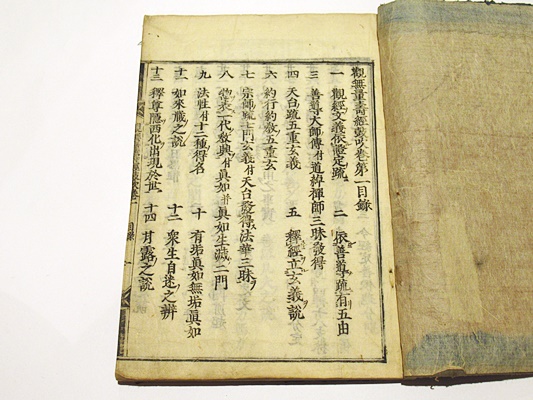 觀無量壽經鼓吹卷第一目錄
一 觀經文義依憑定疏 二 依善導疏有五由
三 善導大師傳有道綽禪師三昧發得
四 天台疏五重玄義 五 釋經立玄義說
六 約行約教五重玄
七 宗師疏七門玄義有天台發得法華三昧
八 惣表一代教興有真如并真如生滅二門
九 法性有十二種得名 十 有垢真如無垢真如
十一 如來藏之說 十二 衆生自迷之辨
十三 釋尊隱西化出現於世 十四 甘露之說
目錄